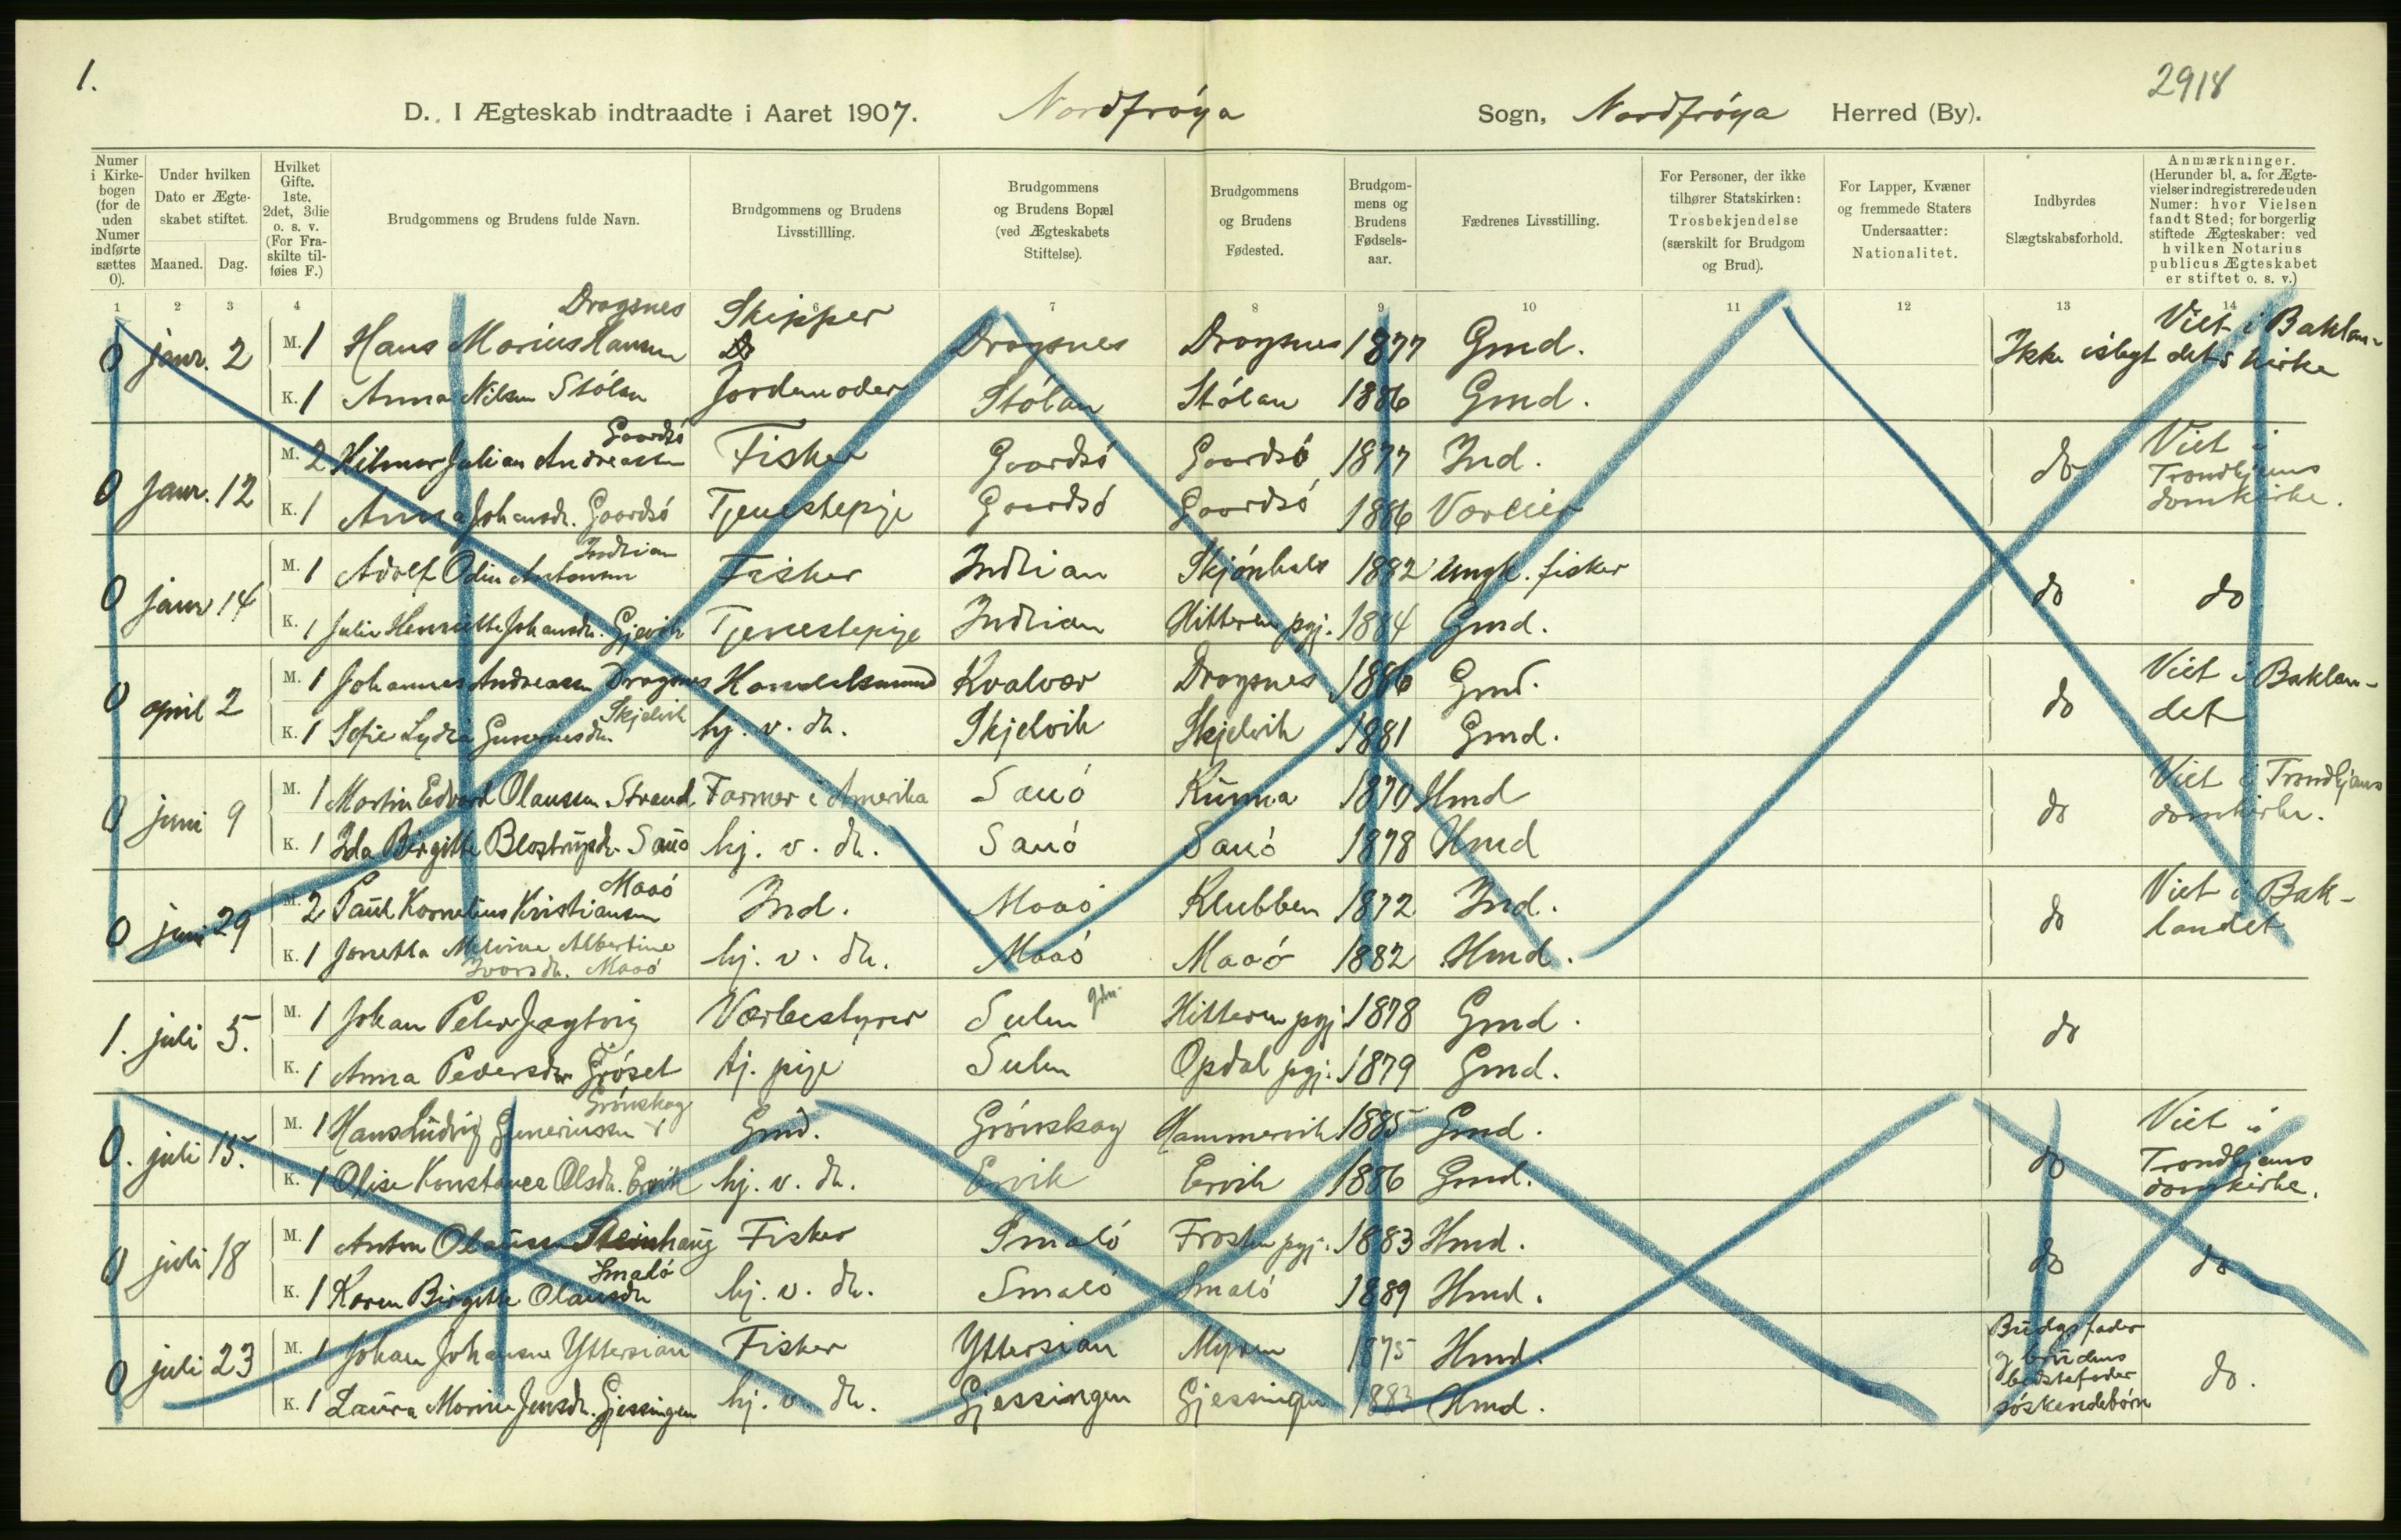 1.
2918
D. I Ægteskab indtraadte i Aaret 1907. Nordfrøya Sogn, Nordfrøya Herred (By).
Numer i Kirkebogen (for de uden Numer indførte sættes 0).
Under hvilken Dato er Ægteskabet stiftet.
Maaned. Dag.
Hvilket Gifte. 1ste, 2det, 3die o. s. v. (For Fraskilte tilføies F.)
Brudgommens og Brudens fulde Navn.
Brudgommens og Brudens Livsstillling.
Brudgommens og Brudens Bopæl (ved Ægteskabets Stiftelse).
Brudgommens og Brudens Fødested.
Brudgommens og Brudens Fødselsaar.
Fædrenes Livsstilling.
For Personer, der ikke tilhører Statskirken: Trosbekjendelse (særskilt for Brudgom og Brud).
For Lapper, Kvæner og fremmede Staters Undersaatter: Nationalitet.
Indbyrdes Slægtskabsforhold.
Anmærkninger. (Herunder bl. a. for Ægtevielser indregistrerede uden Numer: hvor Vielsen fandt Sted; for borgerlig stiftede Ægteskaber: ved hvilken Notarius publicus Ægteskabet er stiftet o. s. v.)
1 2 3 4 6 7 8 9 10 11 12 13 14
0 janr. 2 M. 1 Hans Marius Hansen Dragsnes Skipper Dragsnes Dragsnes 1877 Gmd. Ikke i slegt Viet i Baklandets kirke
K. 1 Anna Nilsen Stölan Jordemoder Stólan Stólan 1886 Gmd.
0 Janr. 12 M. 2 Hilmar Julian Andreassen Gaardsó Fisker Gaardsó Gaardsó 1877 Ind. do Viet i Trondhjems domkirke.
K. 1 Anna Johansdr. Gaardsó Tjenestepige Gaardsó Gaardsó 1886
0 janr 14 M. 1 Adolf Odin Antonsen Indrian Fisker Indrian Skjönhals 1882 Ungk. fisker do do
K. 1 Julie Henriette Johansdr. Gjevik Tjenestepige Indrian Hitteren pgj. 1884 Gmd.
0 april 2 M. 1 Johannes Andreassen Dragsnes Handelsmand Kvalvær Dragsnes 1886 Gmd. do Viet i Baklandet
K. 1 Sofie Lydia Gunneriusdr. Skjelvik hj. v. dr. Skjelvik Skjelvik 1881 Gmd.
0 juni 9 M. 1 Martin Edvard Olaussen Strand Farmer i Amerika Sauó Kunna 1870 Hmd do Viet i Trondhjems domkirke.
K. 1 Ida Birgitte Sauó hj. v. dr. Sauó Sauó 1878 Hmd
0 juni 29 M. 2 Paul Kornelius Kristiansen Maaó Ind. Maaó Klubben 1872 Ind. do Viet i Baklandet
K. 1 Jonetta Melvine Albertine Ivarsdr. Maaó hj. v. dr. Maaó Maaó 1882 Hmd.
1. juli 5. M. 1 Johan Peter Jægtvig Værbestyrer Sulen Hitteren pgj 1878 Gmd. do
K. 1 Anna Pedersdr Gróset tj. pige Sulen Opdal pgj. 1879 Gmd.
0. juli 15. M. 1 Hans Ludvig Guneriussen Grónskag Gmd. Grónskag Hammervik 1885 Gmd. do Viet i Trondhjems domkirke.
K. 1 Olise Konstance Olsdr. Ervik hj. v. dr. Ervik Ervik 1886 Gmd.
0 juli 18 M. 1 Anton Olaussen Steinhaug Fisker Smaló Frosten pgj. 1883 Hmd. do do
K. 1 Karen Birgitte Olausdr Smaló hj. v. dr. Smaló Smaló 1889 Hmd.
0 juli 23 M. 1 Johan Johansen Yttersian Fisker Yttersian Myren 1875 Hmd. Brudgs fader og brudens bedstefader sóskendebórn do.
K. 1 Laura Marine Jensdr. Gjessingen hj. v. dr. Gjessingen Gjessingen 1883 Hmd.